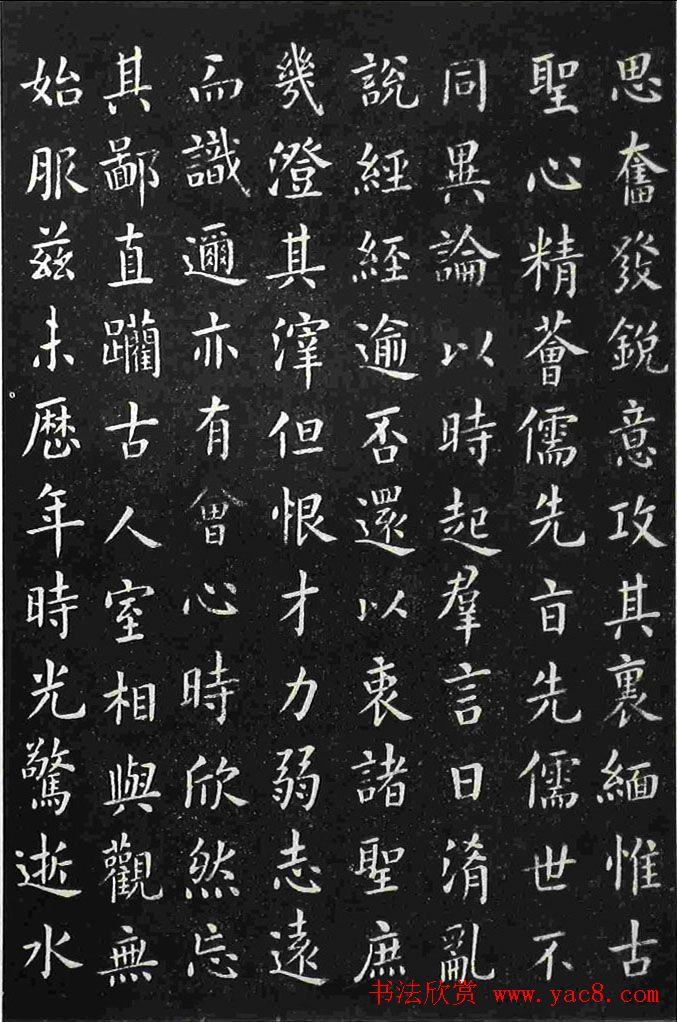 思奮發銳意攻其裏緬惟古
聖心精薈儒先旨先儒世不
同異論以時起羣言日淆亂
說經經逾否還以衷諸聖庶
幾澄其滓但恨才力弱志遠
而識邇亦有會心時欣然忘
其鄙直躪古人室相與觀無
始服茲未歷年時光驚逝水
书法欣赏 www.yac8.com